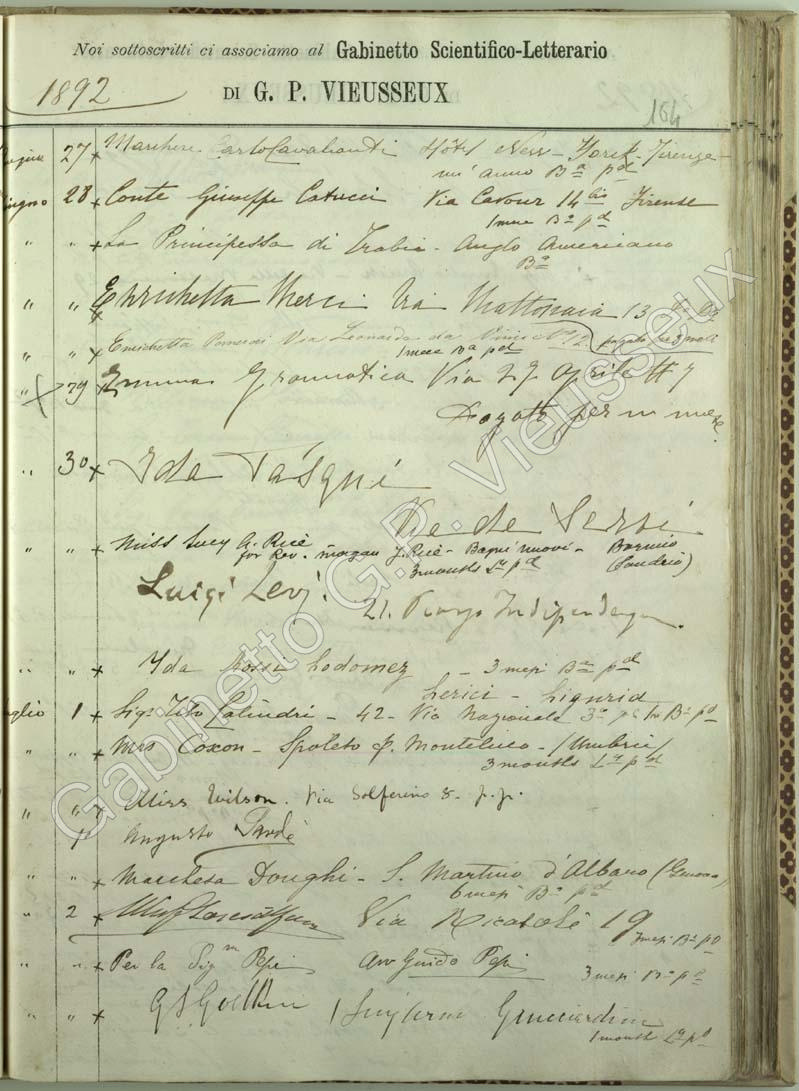 Noi sottoscritti ci associamo al Gabinetto Scientifico-Letterario
1892
DI G. P. VIEUSSEUX
164
27 x Marchese Carlo Cavalcanti Hôtel New-York-Firenze
un' anno Bª pd
Giugno 28 x Conte Giuseppe Catucci Via Cavour 14 bis Firenze
1 mese Bª pd
" " x La Principessa di Trabia - Anglo Americano
Bª
" " x Enrichetta Merci Via Mattonaia 13
" " x Enrichetta Via Leonardo da Vinci No 12 pagato per 3 mesi
1 mese Bª pd
" x 29 Emma Gramatica Via 27 Aprile # 7
Pagato per un mese.
" 30 x Ida
Via de Servi
" " x Miss Lucy A. Rice
for Rev. J. Rice - Bagni nuovi - Bormio
3 months Lª pd (Sondrio)
Luigi Levi.
21. Piazza Indipendenza.
" " x Ida Rossi - 3 mesi Bª pd
Lerici - Liguria
Luglio 1 x Sigr Tito Calindri - 42 - Via Nazionale 3ª pe Bª pd
" " x Mrs Coxon - Spoleto p. Monteluco - (Umbria)
3 months Lª pd
" " x Miss Wilson. Via Solferino 8. p.p.
Augusto
" " x Marchesa Donghi - S. Martino d'Albaro (Genova)
6 mesi Bª pd
" 2 x Via Ricasoli 19
3 mesi Bª pd
" " x Per la Sigra Pepi Avv Guido Pepi
3 mesi Bª pd
" " x 1 Lungarno Guicciardini
1 month Lª pd
Gabinetto G.P. Vieusseux